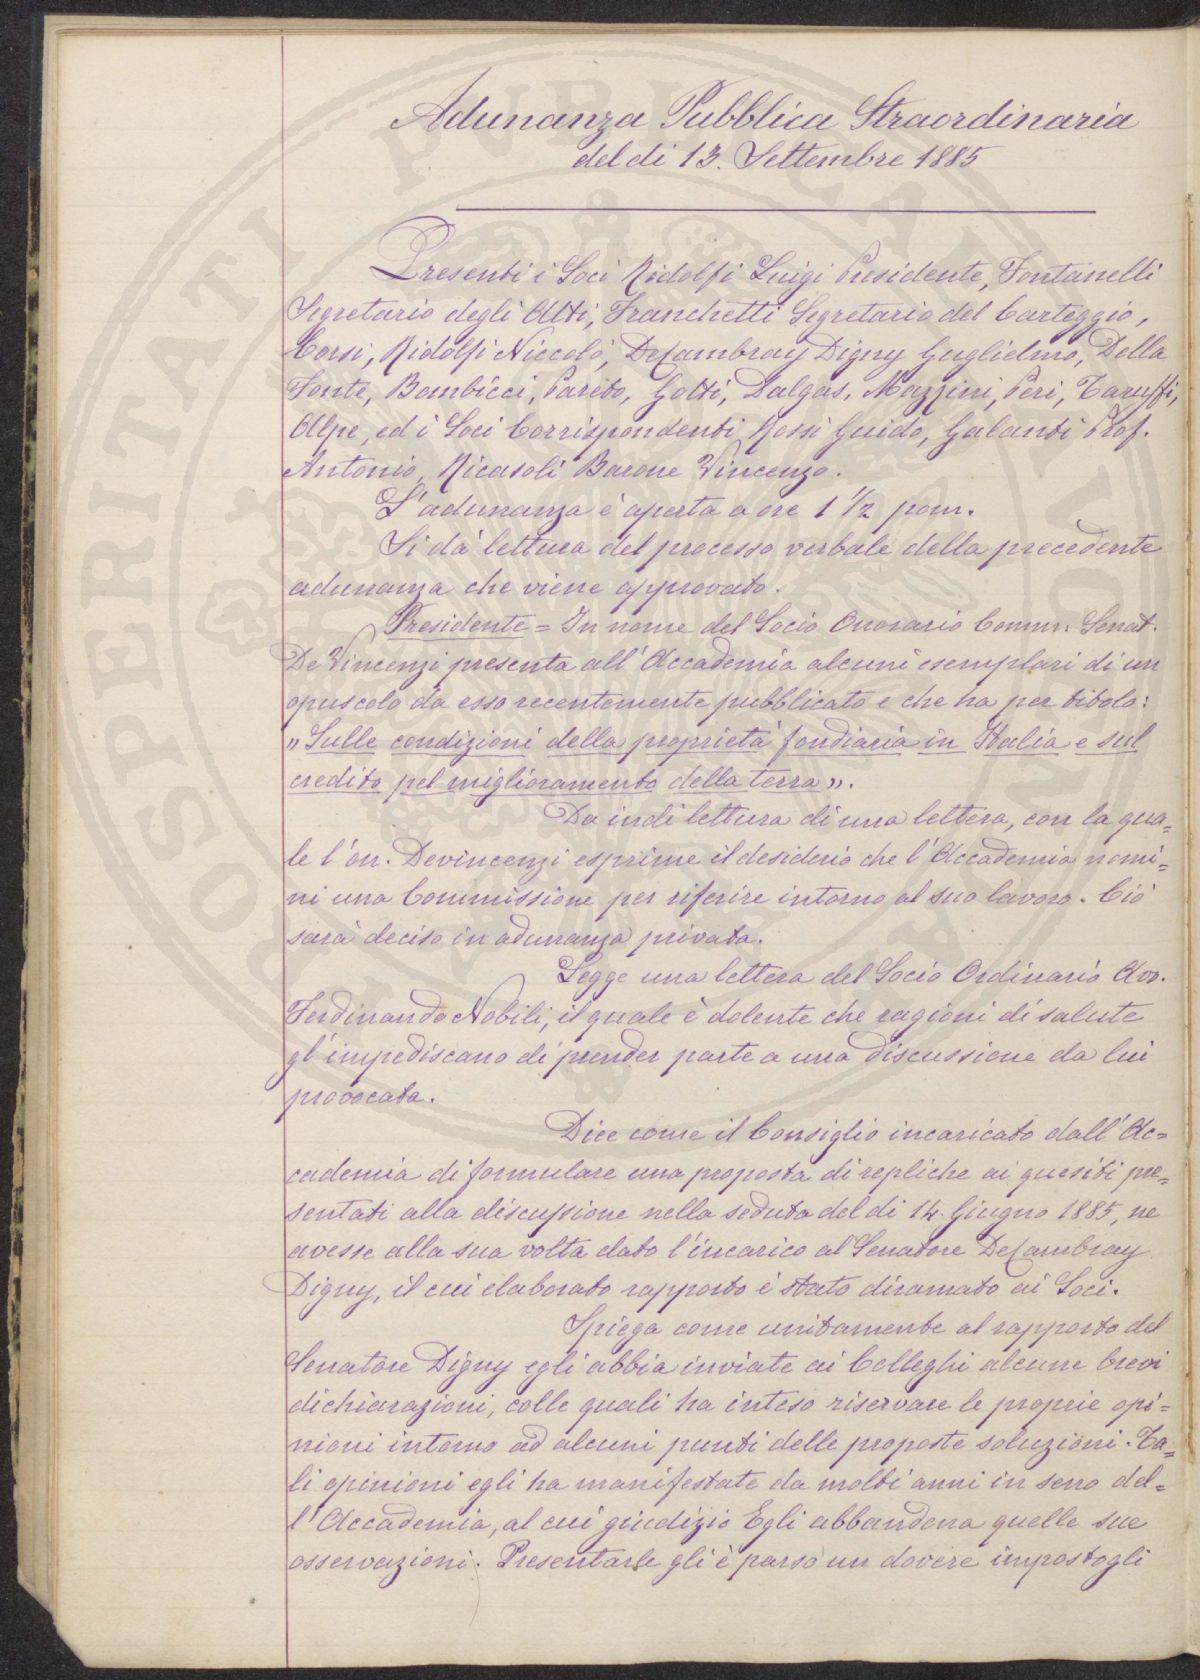 Adunanza Pubblica Straordinaria
del dì 13. Settembre 1885
Presenti i Soci Ridolfi Luigi Presidente, Fontanelli
Segretario degli Atti, Franchetti Segretario del Carteggio,
Corsi, Ridolfi Niccolò, DeCambray Digny Guglielmo, Della
Fonte, Bombicci, Pareto, Gotti, Dalgas, Mazzini, Peri, Taruffi,
Alpe, ed i Soci Corrispondenti Rossi Guido, Galanti Prof.
Antonio, Ricasoli Barone Vincenzo.
L'adunanza è aperta a ore 1 1/2 pom.
Si dà lettura del processo verbale della precedente
adunanza che viene approvato.
Presidente = In nome del Socio Onorario Comm. Senat.
De Vincenzi presenta all'Accademia alcuni esemplari di un
opuscolo da esso recentemente pubblicato e che ha per titolo:
"Sulle condizioni della proprietà fondiaria in Italia e sul
credito pel miglioramento della terra".
Da indi lettura di una lettera, con la qua=
le l'on. Devincenzi esprime il desiderio che l'Accademia nomi=
ni una Commissione per riferire intorno al suo lavoro. Ciò
sarà deciso in adunanza privata.
Legge una lettera del Socio Ordinario Avv.
Ferdinando Nobili, il quale è dolente che ragioni di salute
gl'impediscano di prender parte a una discussione da lui
provocata.
Dice come il Consiglio incaricato dall'Ac=
cademia di formulare una proposta di repliche ai quesiti pre=
sentati alla discussione nella seduta del dì 14. Giugno 1885, ne
avesse alla sua volta dato l'incarico al Senatore DeCambray
Digny, il cui elaborato rapporto è stato diramato ai Soci.
Spiega come unitamente al rapporto del
Senatore Digny egli abbia inviate ai Colleghi alcune brevi
dichiarazioni, colle quali ha inteso riservare le proprie opi=
nioni intorno ad alcuni punti delle proposte soluzioni. Ta=
li opinioni egli ha manifestate da molti anni in seno del=
l'Accademia, al cui giudizio Egli abbandona quelle sue
osservazioni. Presentarle gli è parso un dovere impostogli
SPERITATI PUBLICAE